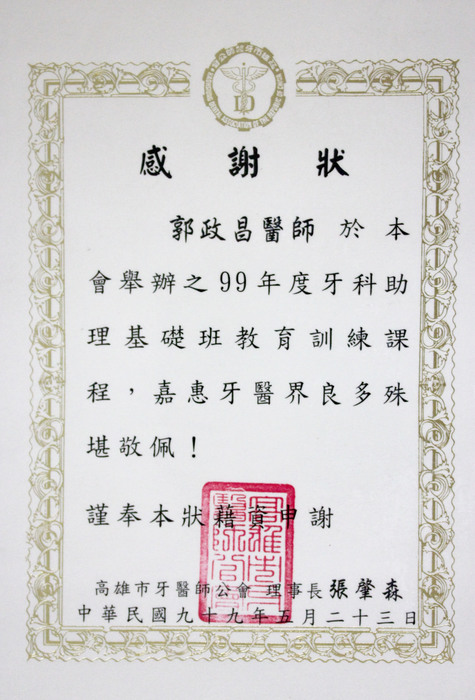 感謝狀
郭政昌醫師 於本
會舉辦之99年度牙科助
理基礎班教育訓練課
程，嘉惠牙醫界良多殊
堪敬佩！
謹奉本狀藉資申謝
高雄市牙醫師公會 理事長 張肇森
中華民國九十九年五月二十三日